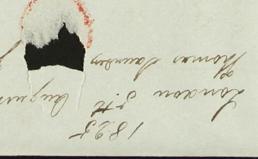 1825
London 5.th August
Thomas Saunders